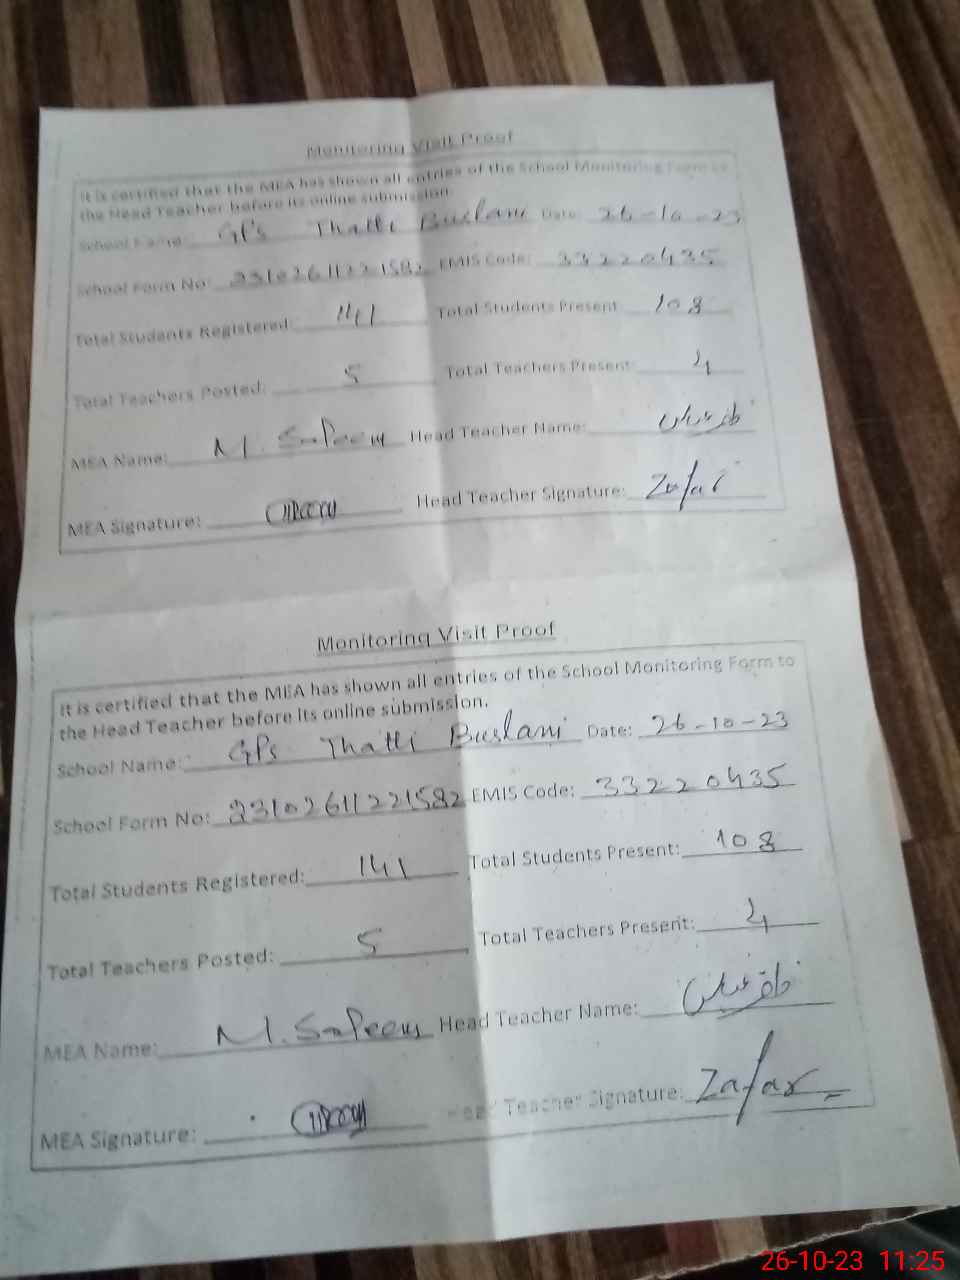 Monitoring Visit Proof
It is certified that the MEA has shown all entries of the School Monitoring Form to
the Head Teacher before its online submission.
School Name: GPS Thatti Buslani Date: 26-10-23
School Form No: 23102611221582 EMIS Code: 33220435
Total Students Registered: 141 Total Students Present: 108
Total Teachers Posted: 5 Total Teachers Present: 4
MEA Name: M. Saleem Head Teacher Name: ظفر عباس
MEA Signature: Head Teacher Signature: Zafar
Monitoring Visit Proof
It is certified that the MEA has shown all entries of the School Monitoring Form to
the Head Teacher before its online submission.
School Name: GPS Thatti Buslani Date: 26-10-23
School Form No: 23102611221582 EMIS Code: 33220435
Total Students Registered: 141 Total Students Present: 108
Total Teachers Posted: 5 Total Teachers Present: 4
MEA Name: M. Saleem Head Teacher Name: ظفر عباس
MEA Signature: Head Teacher Signature: Zafar
26-10-23 11:25